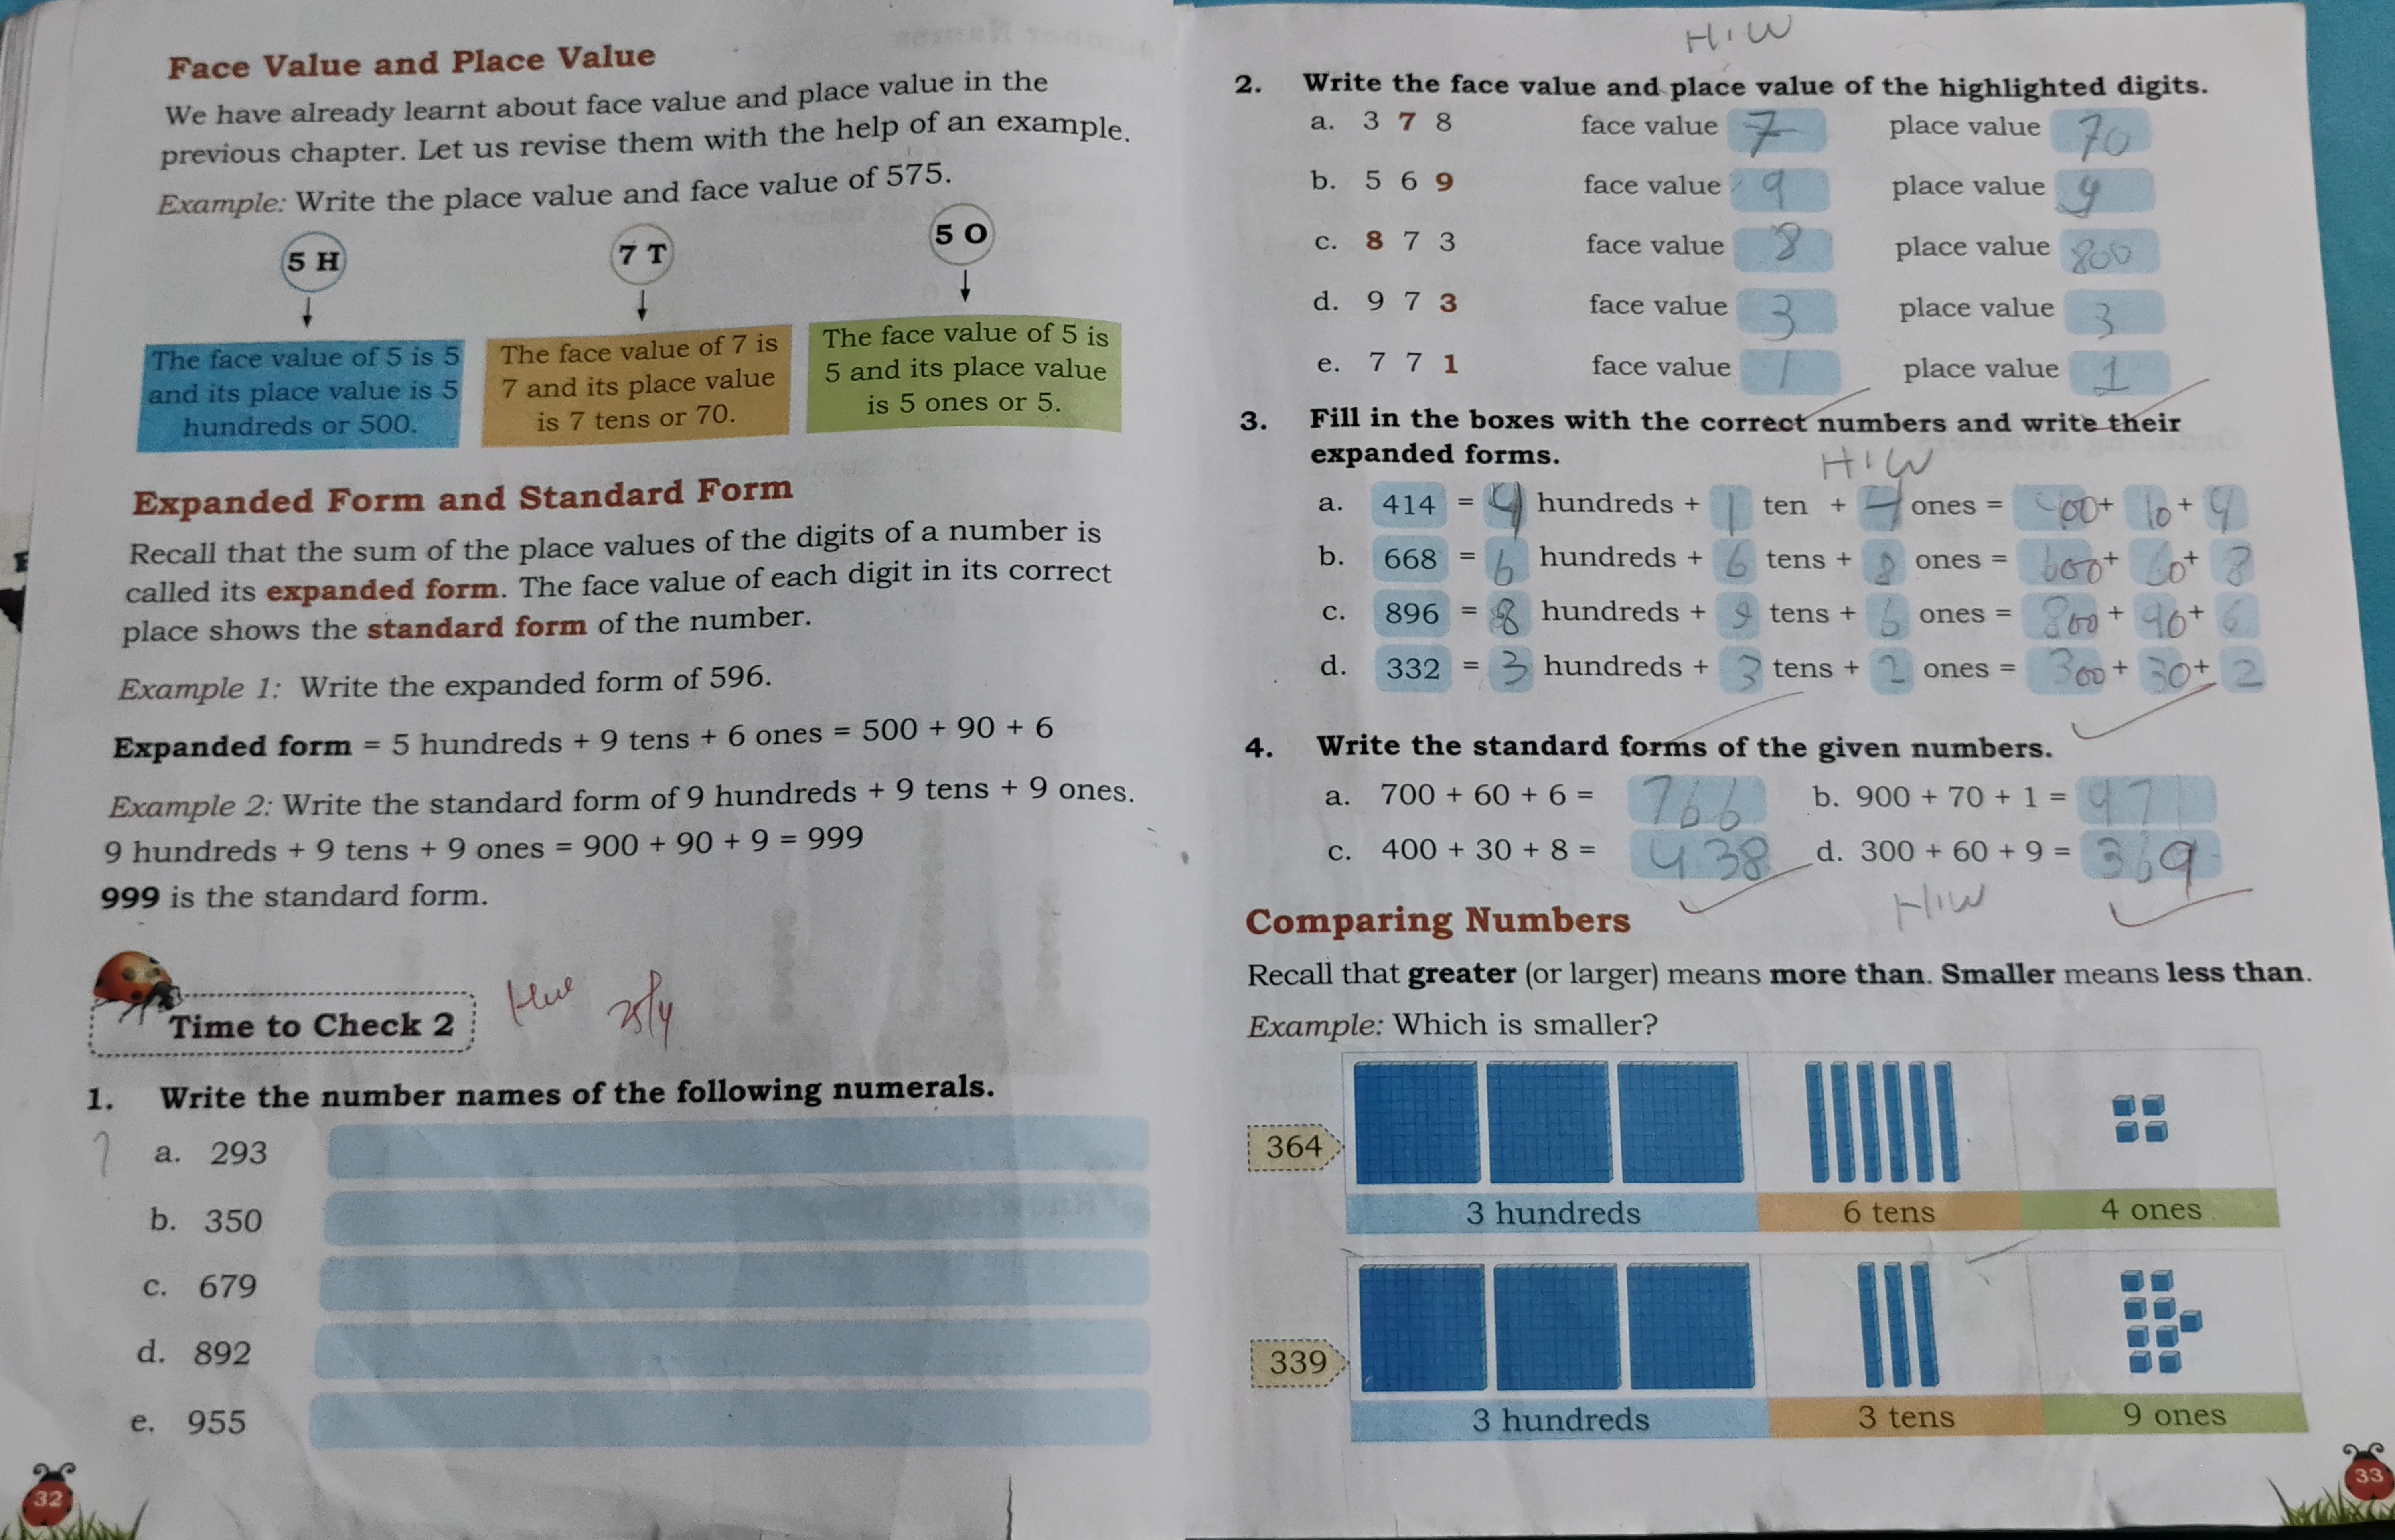 Face Value and Place Value
We have already learnt about face value and place value in the
previous chapter. Let us revise them with the help of an example.
Example: Write the place value and face value of 575.
5 H
7 T
5 O
The face value of 5 is 5
and its place value is 5
hundreds or 500.
The face value of 7 is
7 and its place value
is 7 tens or 70.
The face value of 5 is
5 and its place value
is 5 ones or 5.
Expanded Form and Standard Form
Recall that the sum of the place values of the digits of a number is
called its expanded form. The face value of each digit in its correct
place shows the standard form of the number.
Example 1: Write the expanded form of 596.
Expanded form = 5 hundreds + 9 tens + 6 ones = 500 + 90 + 6
Example 2: Write the standard form of 9 hundreds + 9 tens + 9 ones.
9 hundreds + 9 tens + 9 ones = 900 + 90 + 9 = 999
999 is the standard form.
Time to Check 2
25/4
1. Write the number names of the following numerals.
a. 293
b. 350
c. 679
d. 892
e. 955
32
H.W
2. Write the face value and place value of the highlighted digits.
a. 3 7 8 face value 7 place value 70
b. 5 6 9 face value 9 place value 9
c. 8 7 3 face value 8 place value 800
d. 9 7 3 face value 3 place value 3
e. 7 7 1 face value 1 place value 1
3. Fill in the boxes with the correct numbers and write their
expanded forms.
H.W
a. 414 = 4 hundreds + 1 ten + 4 ones = 400 + 10 + 4
b. 668 = 6 hundreds + 6 tens + 8 ones = 600 + 60 + 8
c. 896 = 8 hundreds + 9 tens + 6 ones = 800 + 90 + 6
d. 332 = 3 hundreds + 3 tens + 2 ones = 300 + 30 + 2
4. Write the standard forms of the given numbers.
a. 700 + 60 + 6 = 766 b. 900 + 70 + 1 = 971
c. 400 + 30 + 8 = 438 d. 300 + 60 + 9 = 369
H.W
Comparing Numbers
Recall that greater (or larger) means more than. Smaller means less than.
Example: Which is smaller?
364
3 hundreds 6 tens 4 ones
339
3 hundreds 3 tens 9 ones
33